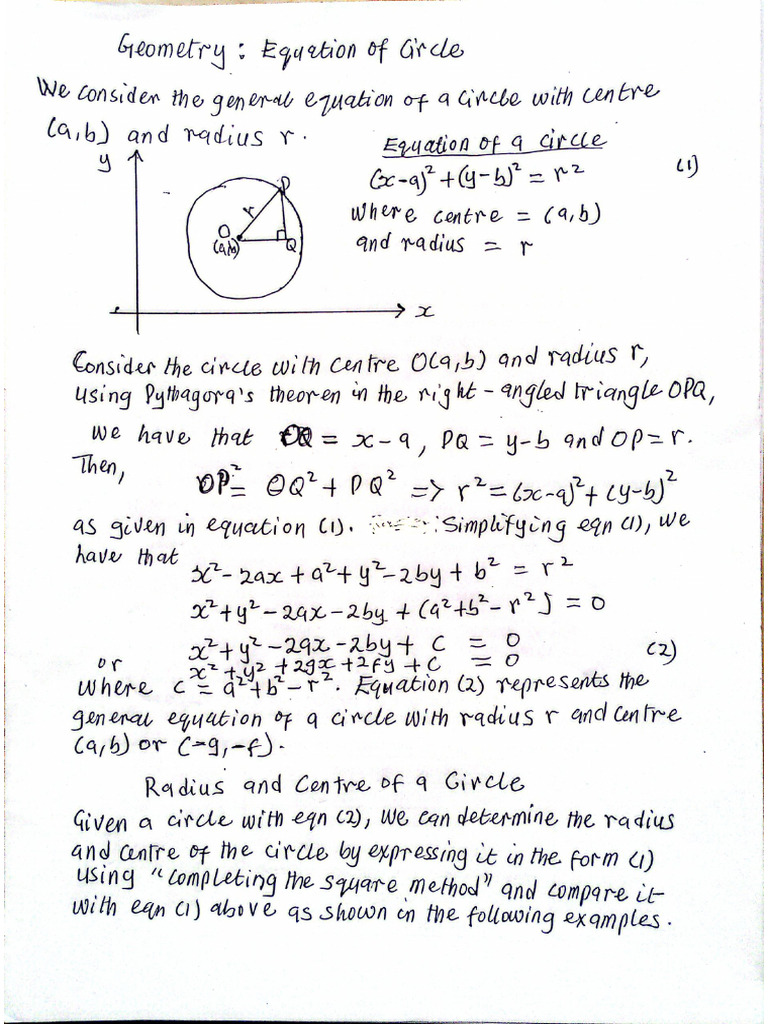 Geometry: Equation of Circle
We consider the general equation of a circle with centre
(a,b) and radius r.
Equation of a circle
y
(x-a)² + (y-b)² = r² (1)
P
where centre = (a,b)
r
O
(a,b)
Q
and radius = r
x
Consider the circle with centre O(a,b) and radius r,
using Pythagora's theoren in the right-angled triangle OPQ,
we have that OQ = x-a, PQ = y-b and OP=r.
Then,
OP² = OQ² + PQ² => r² = (x-a)² + (y-b)²
as given in equation (1). Simplifying eqn (1), we
have that
x² - 2ax + a² + y² - 2by + b² = r²
x² + y² - 2ax - 2by + (a² + b² - r²) = 0
x² + y² - 2ax - 2by + c = 0 (2)
or x² + y² + 2gx + 2fy + c = 0
where c = a² + b² - r². Equation (2) represents the
general equation of a circle with radius r and centre
(a,b) or (-g,-f).
Radius and Centre of a Circle
Given a circle with eqn (2), we can determine the radius
and centre of the circle by expressing it in the form (1)
using "completing the square method" and compare it
with eqn (1) above as shown in the following examples.